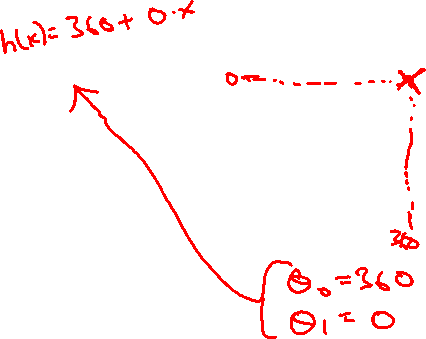 h(x) = 360 + 0·x
0
360
θ₀ = 360
θ₁ = 0